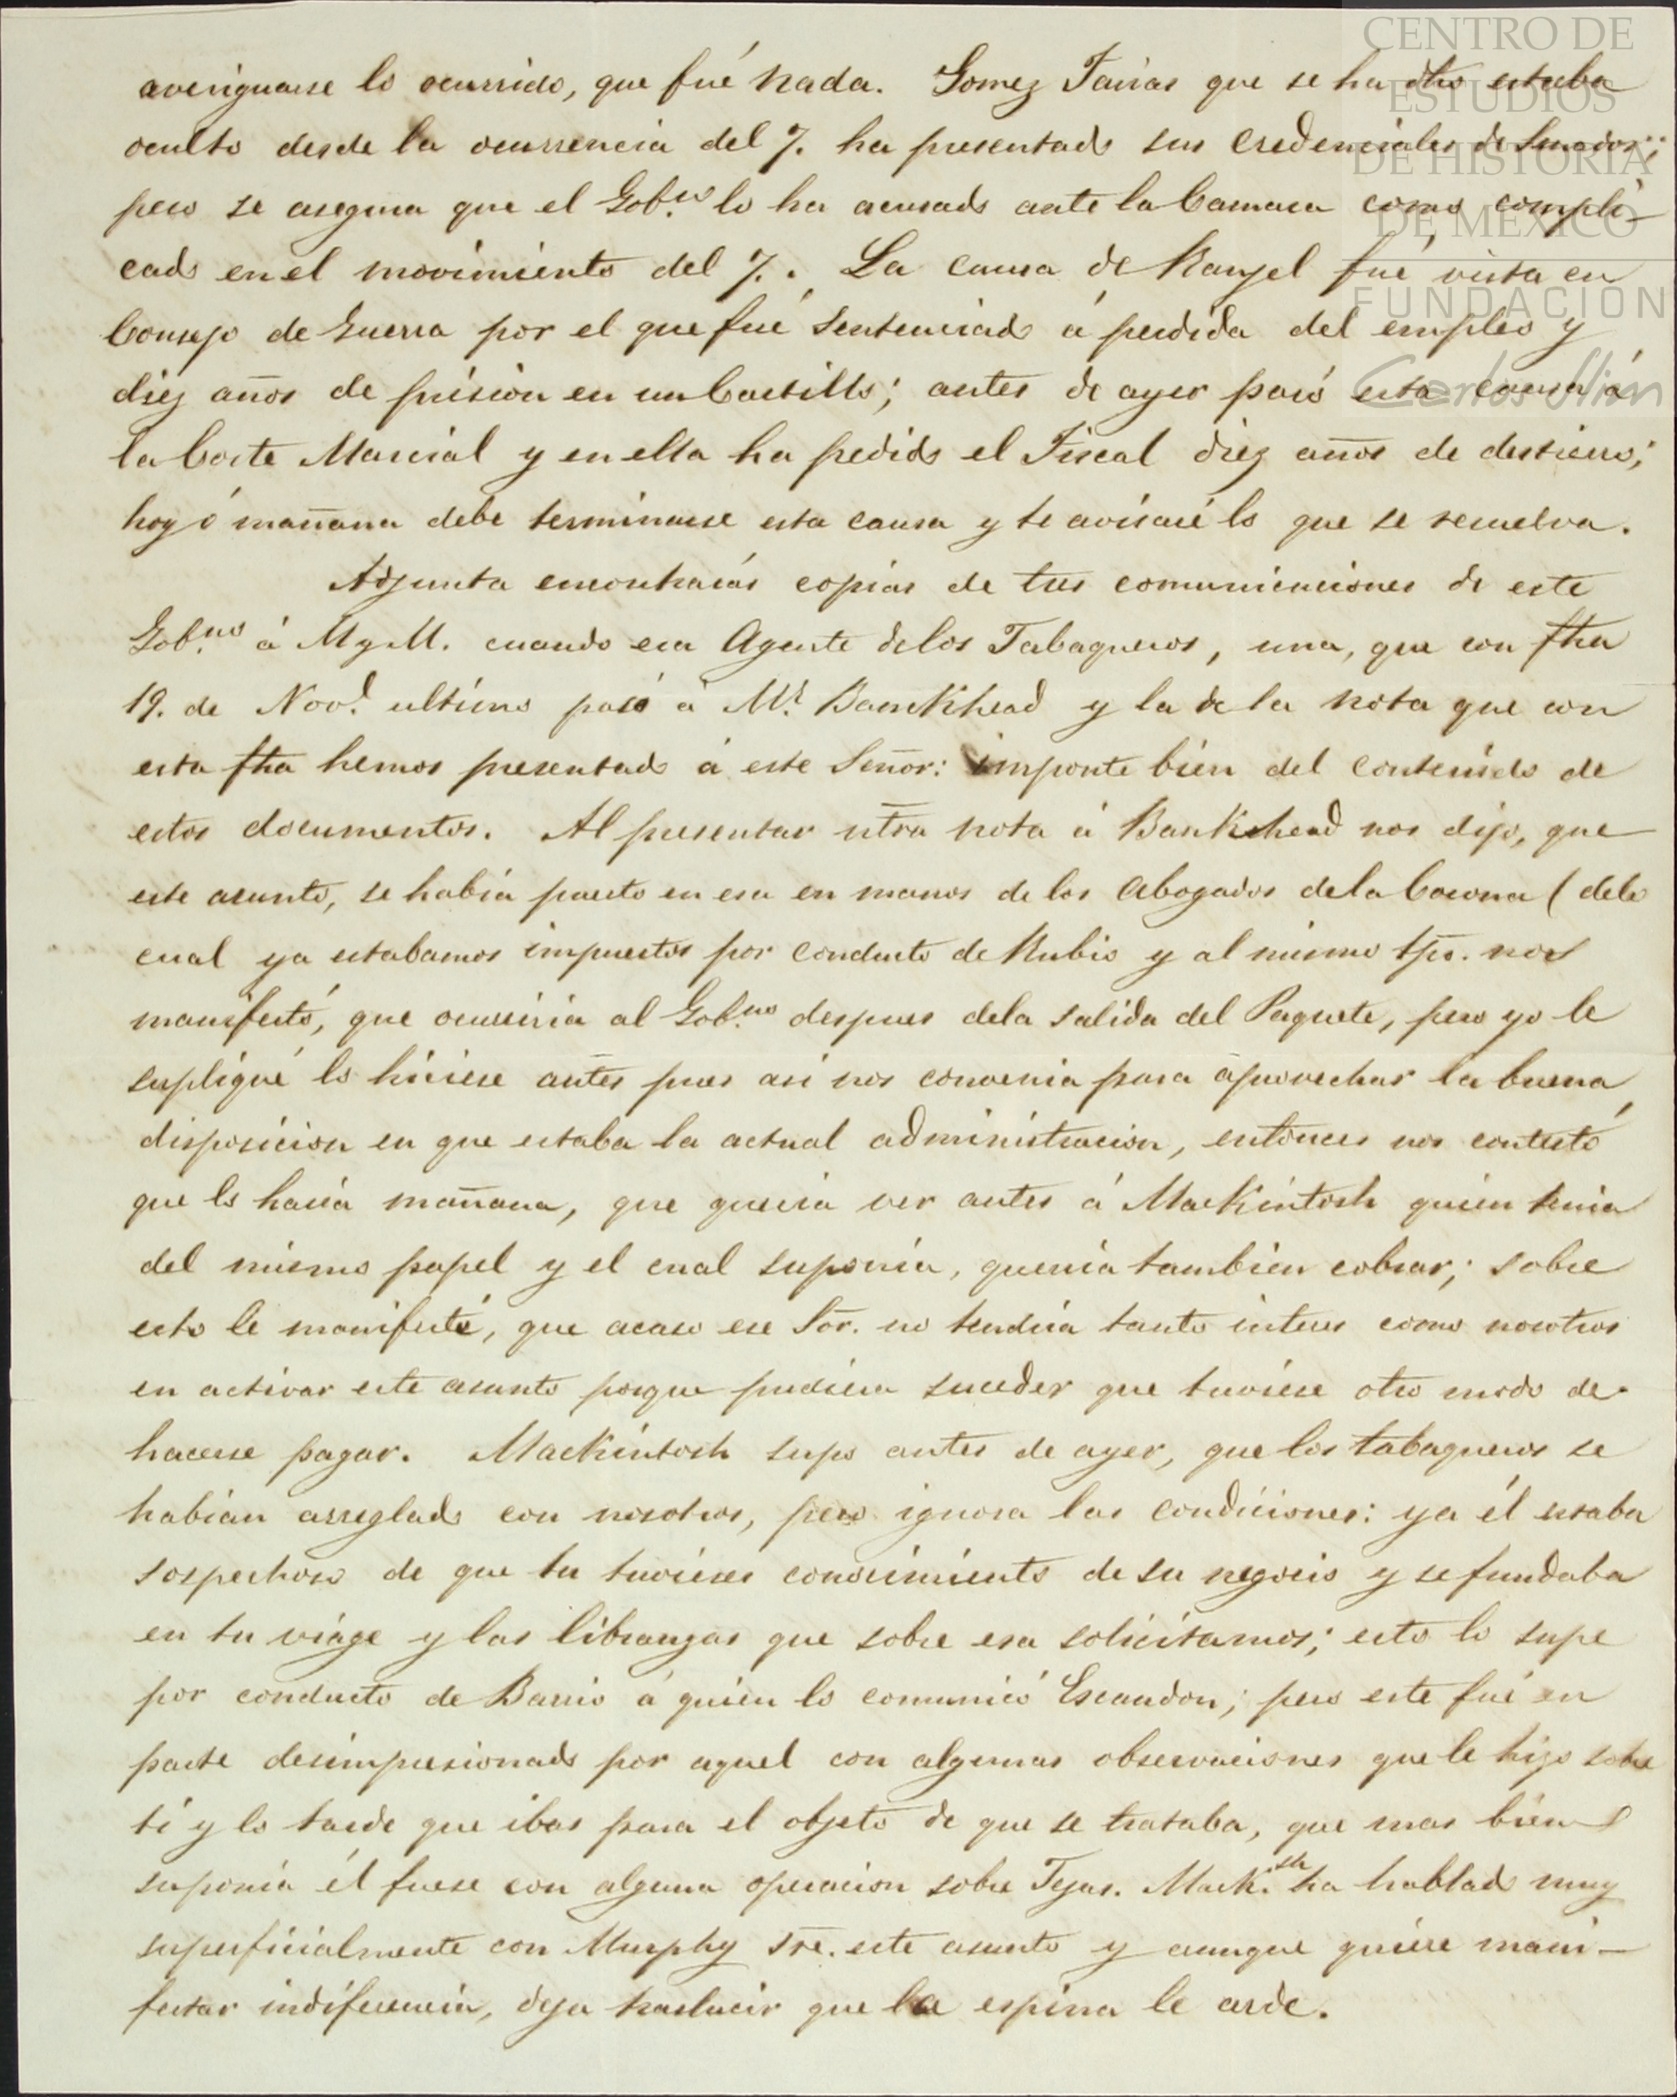 CENTRO DE
ESTUDIOS
DE HISTORIA
DE MÉXICO
FUNDACIÓN
Carlos Slim
averiguarse lo ocurrido, que fué nada. Gomez Farias que se ha dho estaba
oculto desde la ocurrencia del 7. ha presentado sus credenciales de Senador;
pero se asegura que el Gob.no lo ha acusado ante la Camara como compli-
cado en el movimiento del 7. La causa de Rangel fué vista en
Consejo de Guerra por el que fué sentenciado á perdida del empleo y
diez años de prision en un Castillo; antes de ayer pasó esta causa á
la Corte Marcial y en ella ha pedido el Fiscal diez años de destierro;
hoy ó mañana debe terminarse esta causa y te avisaré lo que se resuelva.
Adjunta encontrarás copias de tres comunicaciones de este
Gob.no á M y M. cuando era Agente delos Tabaqueros, una, que con fha
19. de Nov.e ultimo pasó á Mr. Bankhead y la de la nota que con
esta fha hemos presentado á este Señor: imponte bien del contenido de
estos documentos. Al presentar ntra nota á Bankhead nos dijo, que
este asunto, se habia puesto en esa en manos de los Abogados dela Corona (delo
cual ya estabamos impuestos por conducto de Rubio y al mismo tpo. nos
manifestó, que ocurriria al Gob.no despues dela salida del Paquete, pero yo le
supliqué lo hiciese antes pues asi nos convenia para aprovechar la buena
disposicion en que estaba la actual administracion, entonces nos contestó
que lo haria mañana, que queria ver antes á Mackintosh quien tenia
del mismo papel y el cual suponia, queria tambien cobrar; sobre
esto le manifesté, que acaso ese Sor. no tendria tanto interes como nosotros
en activar este asunto porque pudiera suceder que tuviese otro modo de
hacerse pagar. Mackintosh supo antes de ayer, que los tabaqueros se
habian arreglado con nosotros, pero ignora las condiciones: ya él estaba
sospechoso de que tu tuvieses conocimiento de su negocio y se fundaba
en tu viage y las libranzas que sobre esa solicitamos; esto lo supe
por conducto de Barrio á quien lo comunicó Escandon; pero este fué en
parte desimpresionado por aquel con algunas observaciones que le hizo sobre
ti y lo tarde que ibas para el objeto de que se trataba, que mas bien
suponia él fuese con alguna operacion sobre Tejas. Mack.sh ha hablado muy
superficialmente con Murphy sre. este asunto y aunque quiere mani-
festar indiferencia, deja traslucir que la espina le arde.